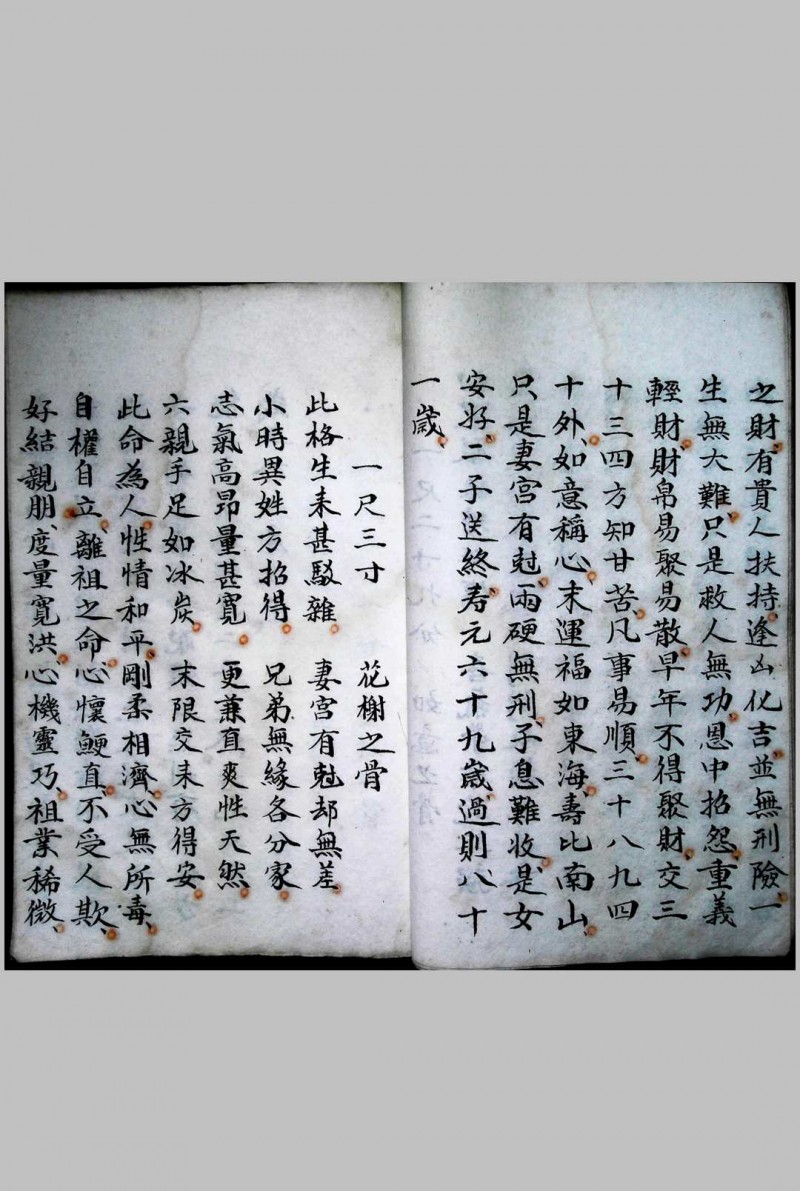 之財、有貴人扶持、逢凶化吉、並無刑險、一
生無大難、只是救人無功、恩中招怨、重義
輕財、財帛易聚易散、早年不得聚財、交三
十三四方知甘苦、凡事易順、三十八九四
十外、如意稱心、末運福如東海、壽比南山、
只是妻宮有尅、兩硬無刑、子息難收、是女
安好、二子送終、寿元六十九歲、過則八十
一歲、
一尺三寸　花榭之骨
此格生來甚駁雜　妻宮有尅却無差
小時異姓方招得　兄弟無緣各分家
志氣高昂量甚寬　更兼直爽性天然
六親手足如冰炭　末限交来方得安
此命為人性情和平、剛柔相濟、心無所毒、
自權自立、離祖之命、心懷鯁直、不受人欺、
好結親朋、度量寬洪、心機靈巧、祖業稀微、